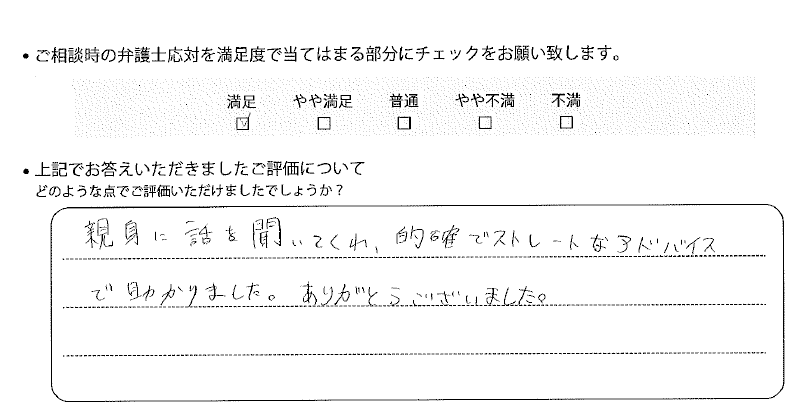 • ご相談時の弁護士応対を満足度で当てはまる部分にチェックをお願い致します。
満足 やや満足 普通 やや不満 不満
☑ □ □ □ □
• 上記でお答えいただきましたご評価について
どのような点でご評価いただけましたでしょうか？
親身に話を聞いてくれ、的確でストレートなアドバイス
で助かりました。ありがとうございました。